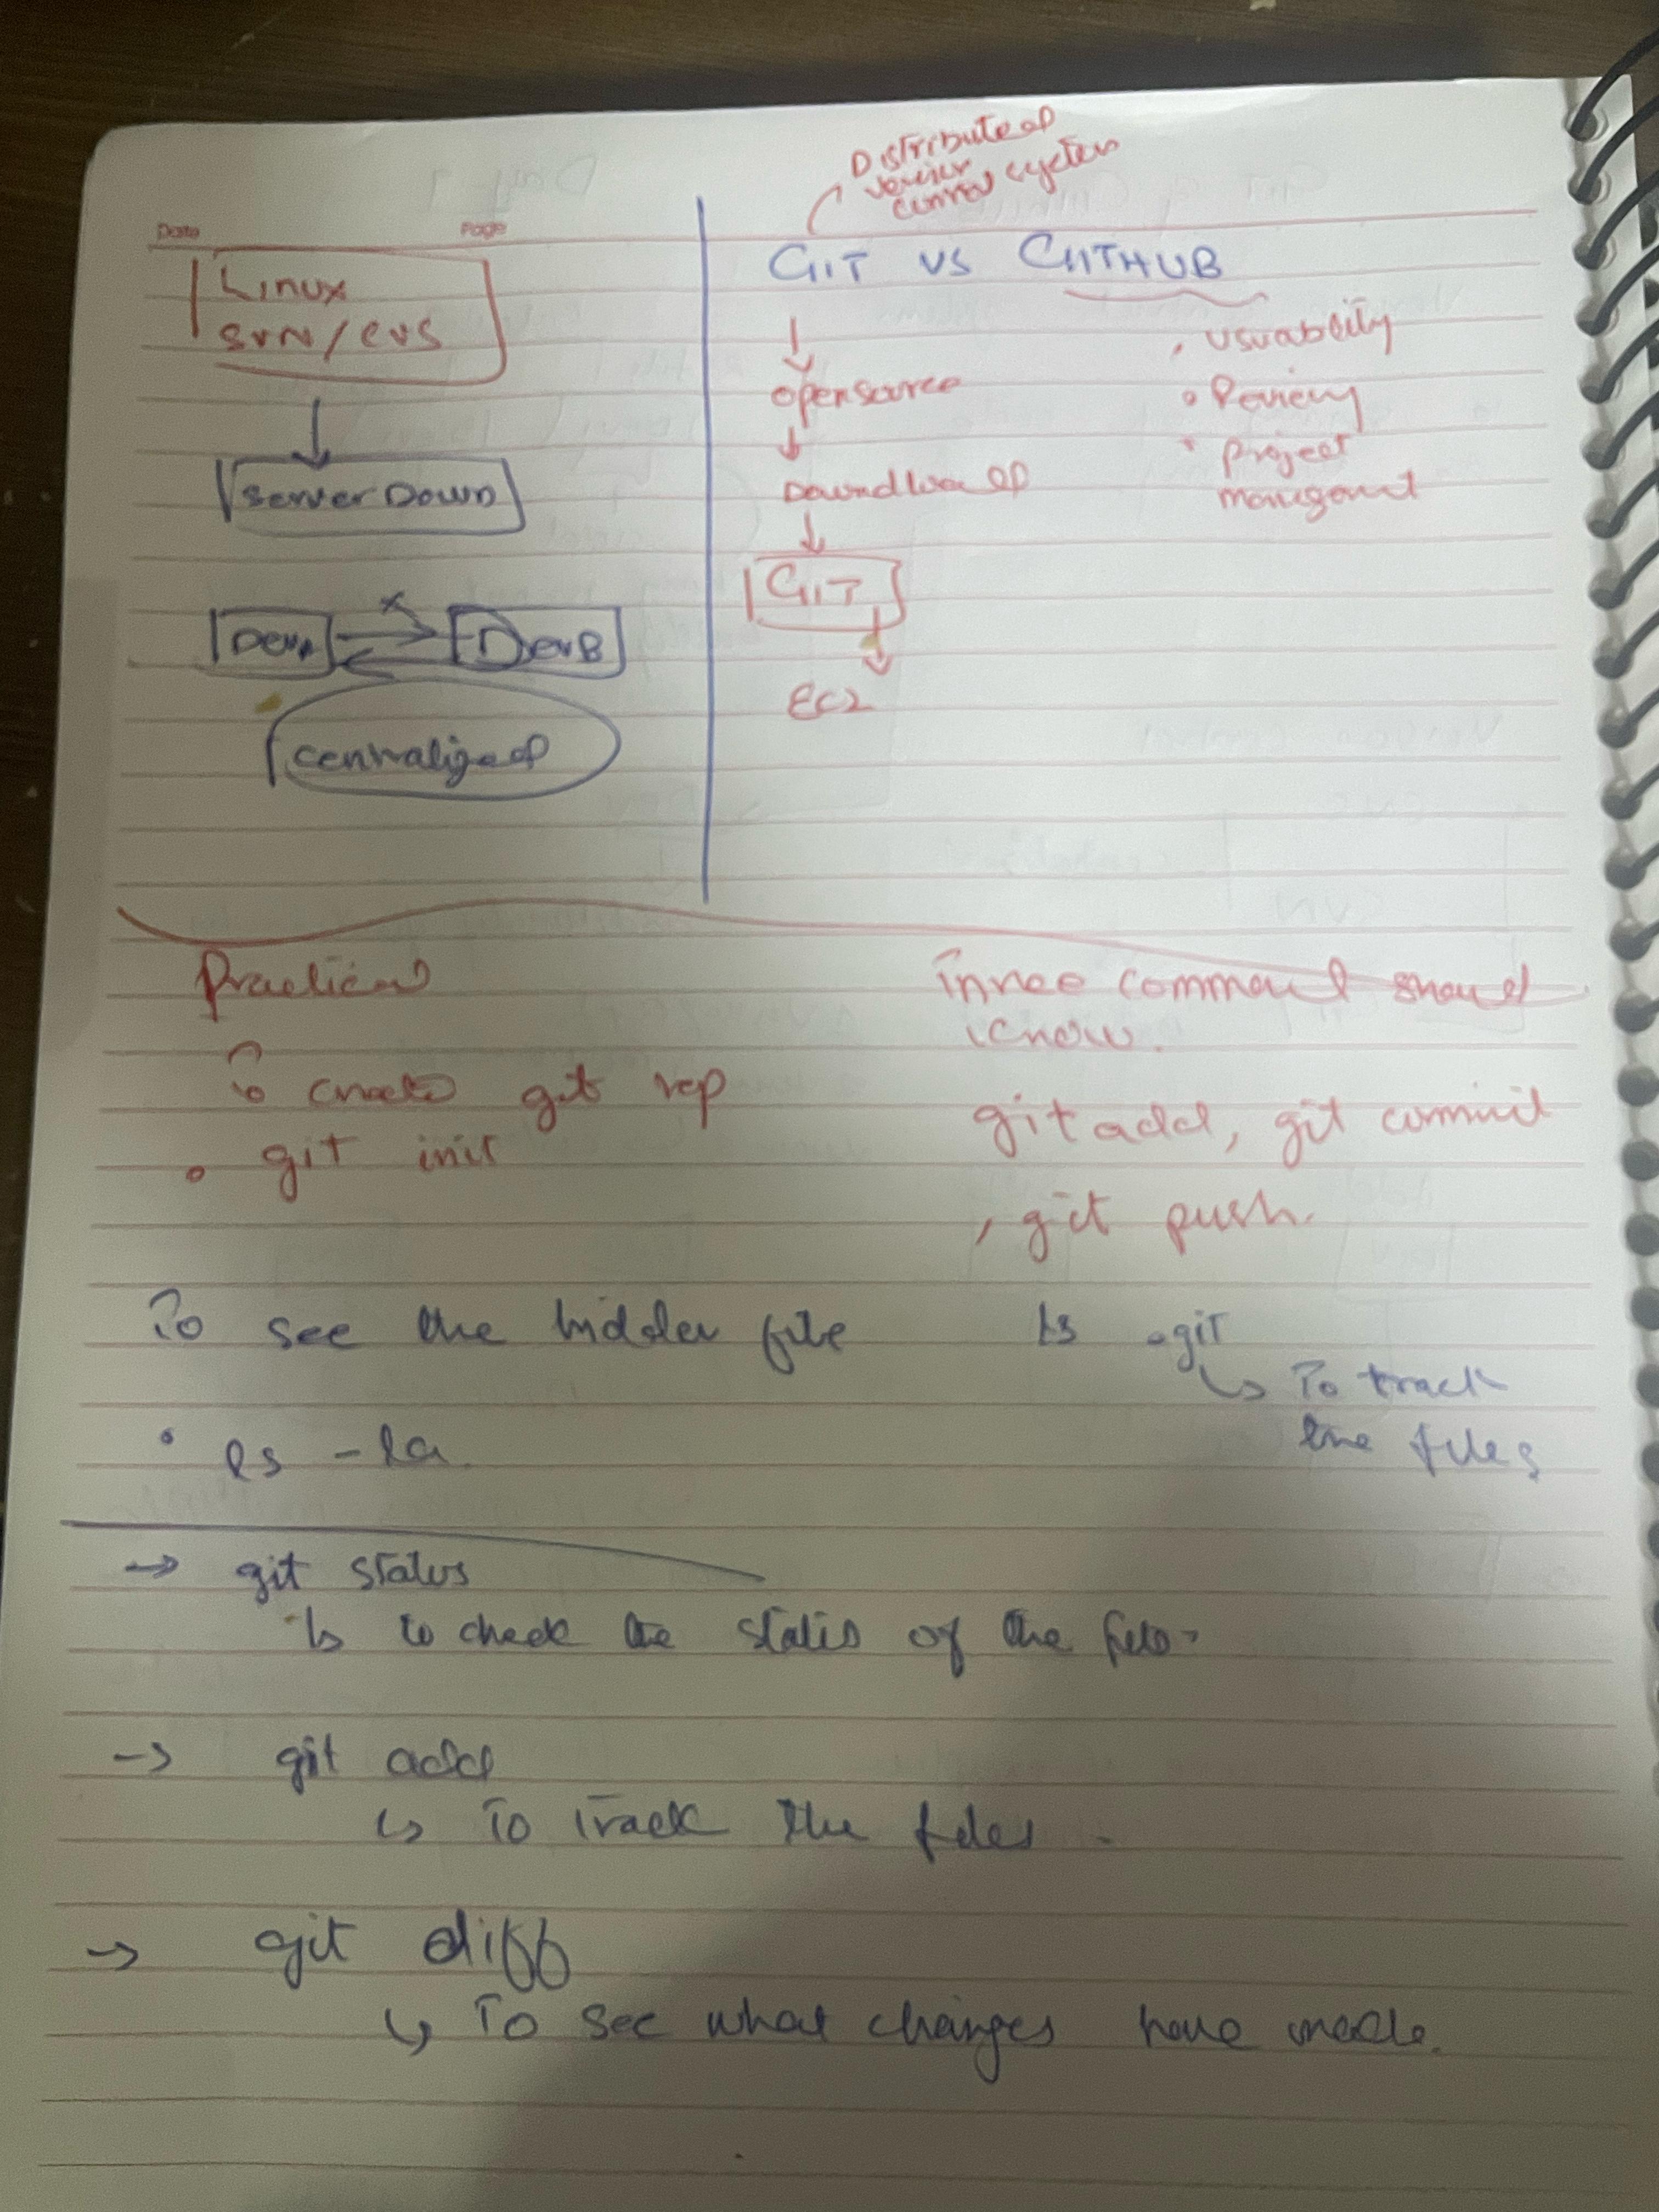 Date Page
Linux
SVN/CVS
Server Down
DevA
DevB
centralized
Distributed
version
control system
GIT VS GITHUB
opensource
Download
GIT
EC2
. usuability
• Review
• project
managment
Practical
To create git rep
• git init
Three command should
know.
git add, git commit
, git push.
To see the hidden file
• ls -la
ls .git
To track
the files
→ git status
↳ to check the status of the
→ git add
↳ To track the files.
→ git diff
↳ To see what changes have made.